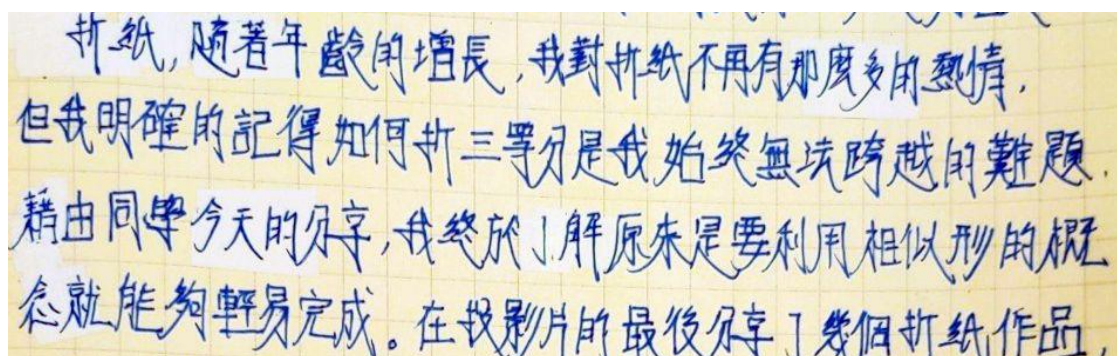 折紙,隨著年齡的增長,我對折紙不再有那麼多的熱情,
但我明確的記得如何折三等分是我始終無法跨越的難題.
藉由同學今天的分享,我終於了解原來是要利用相似形的概
念就能夠輕易完成。在投影片的最後分享了幾個折紙作品,